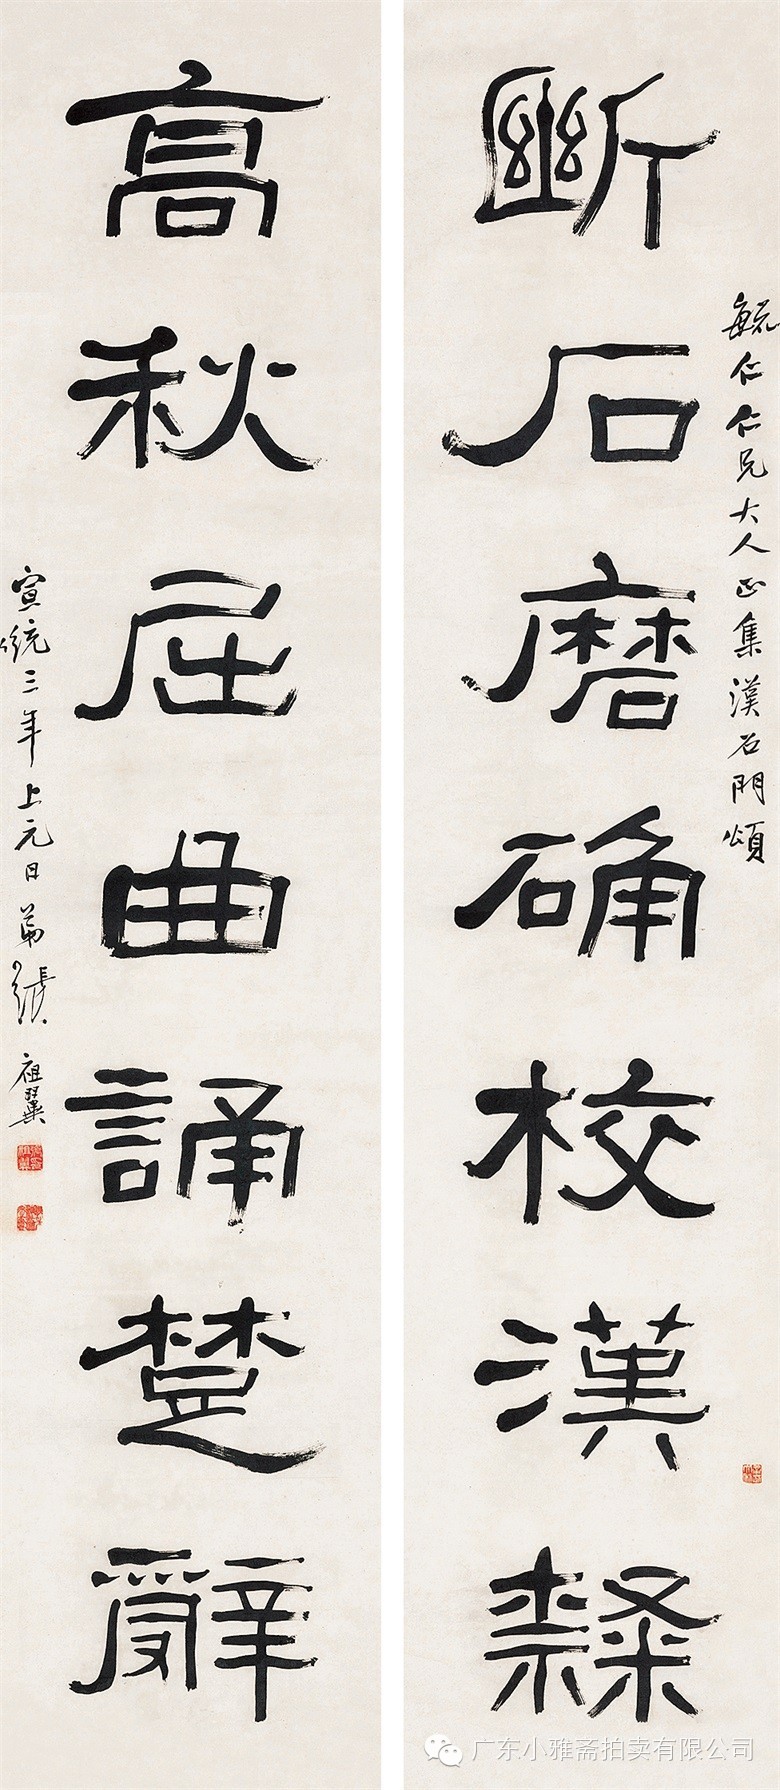 毓仁仁兄大人正集漢石門頌
斷石磨确校漢隸
高秋屈曲誦楚辭
宣統三年上元日弟張祖翼
广东小雅斋拍卖有限公司